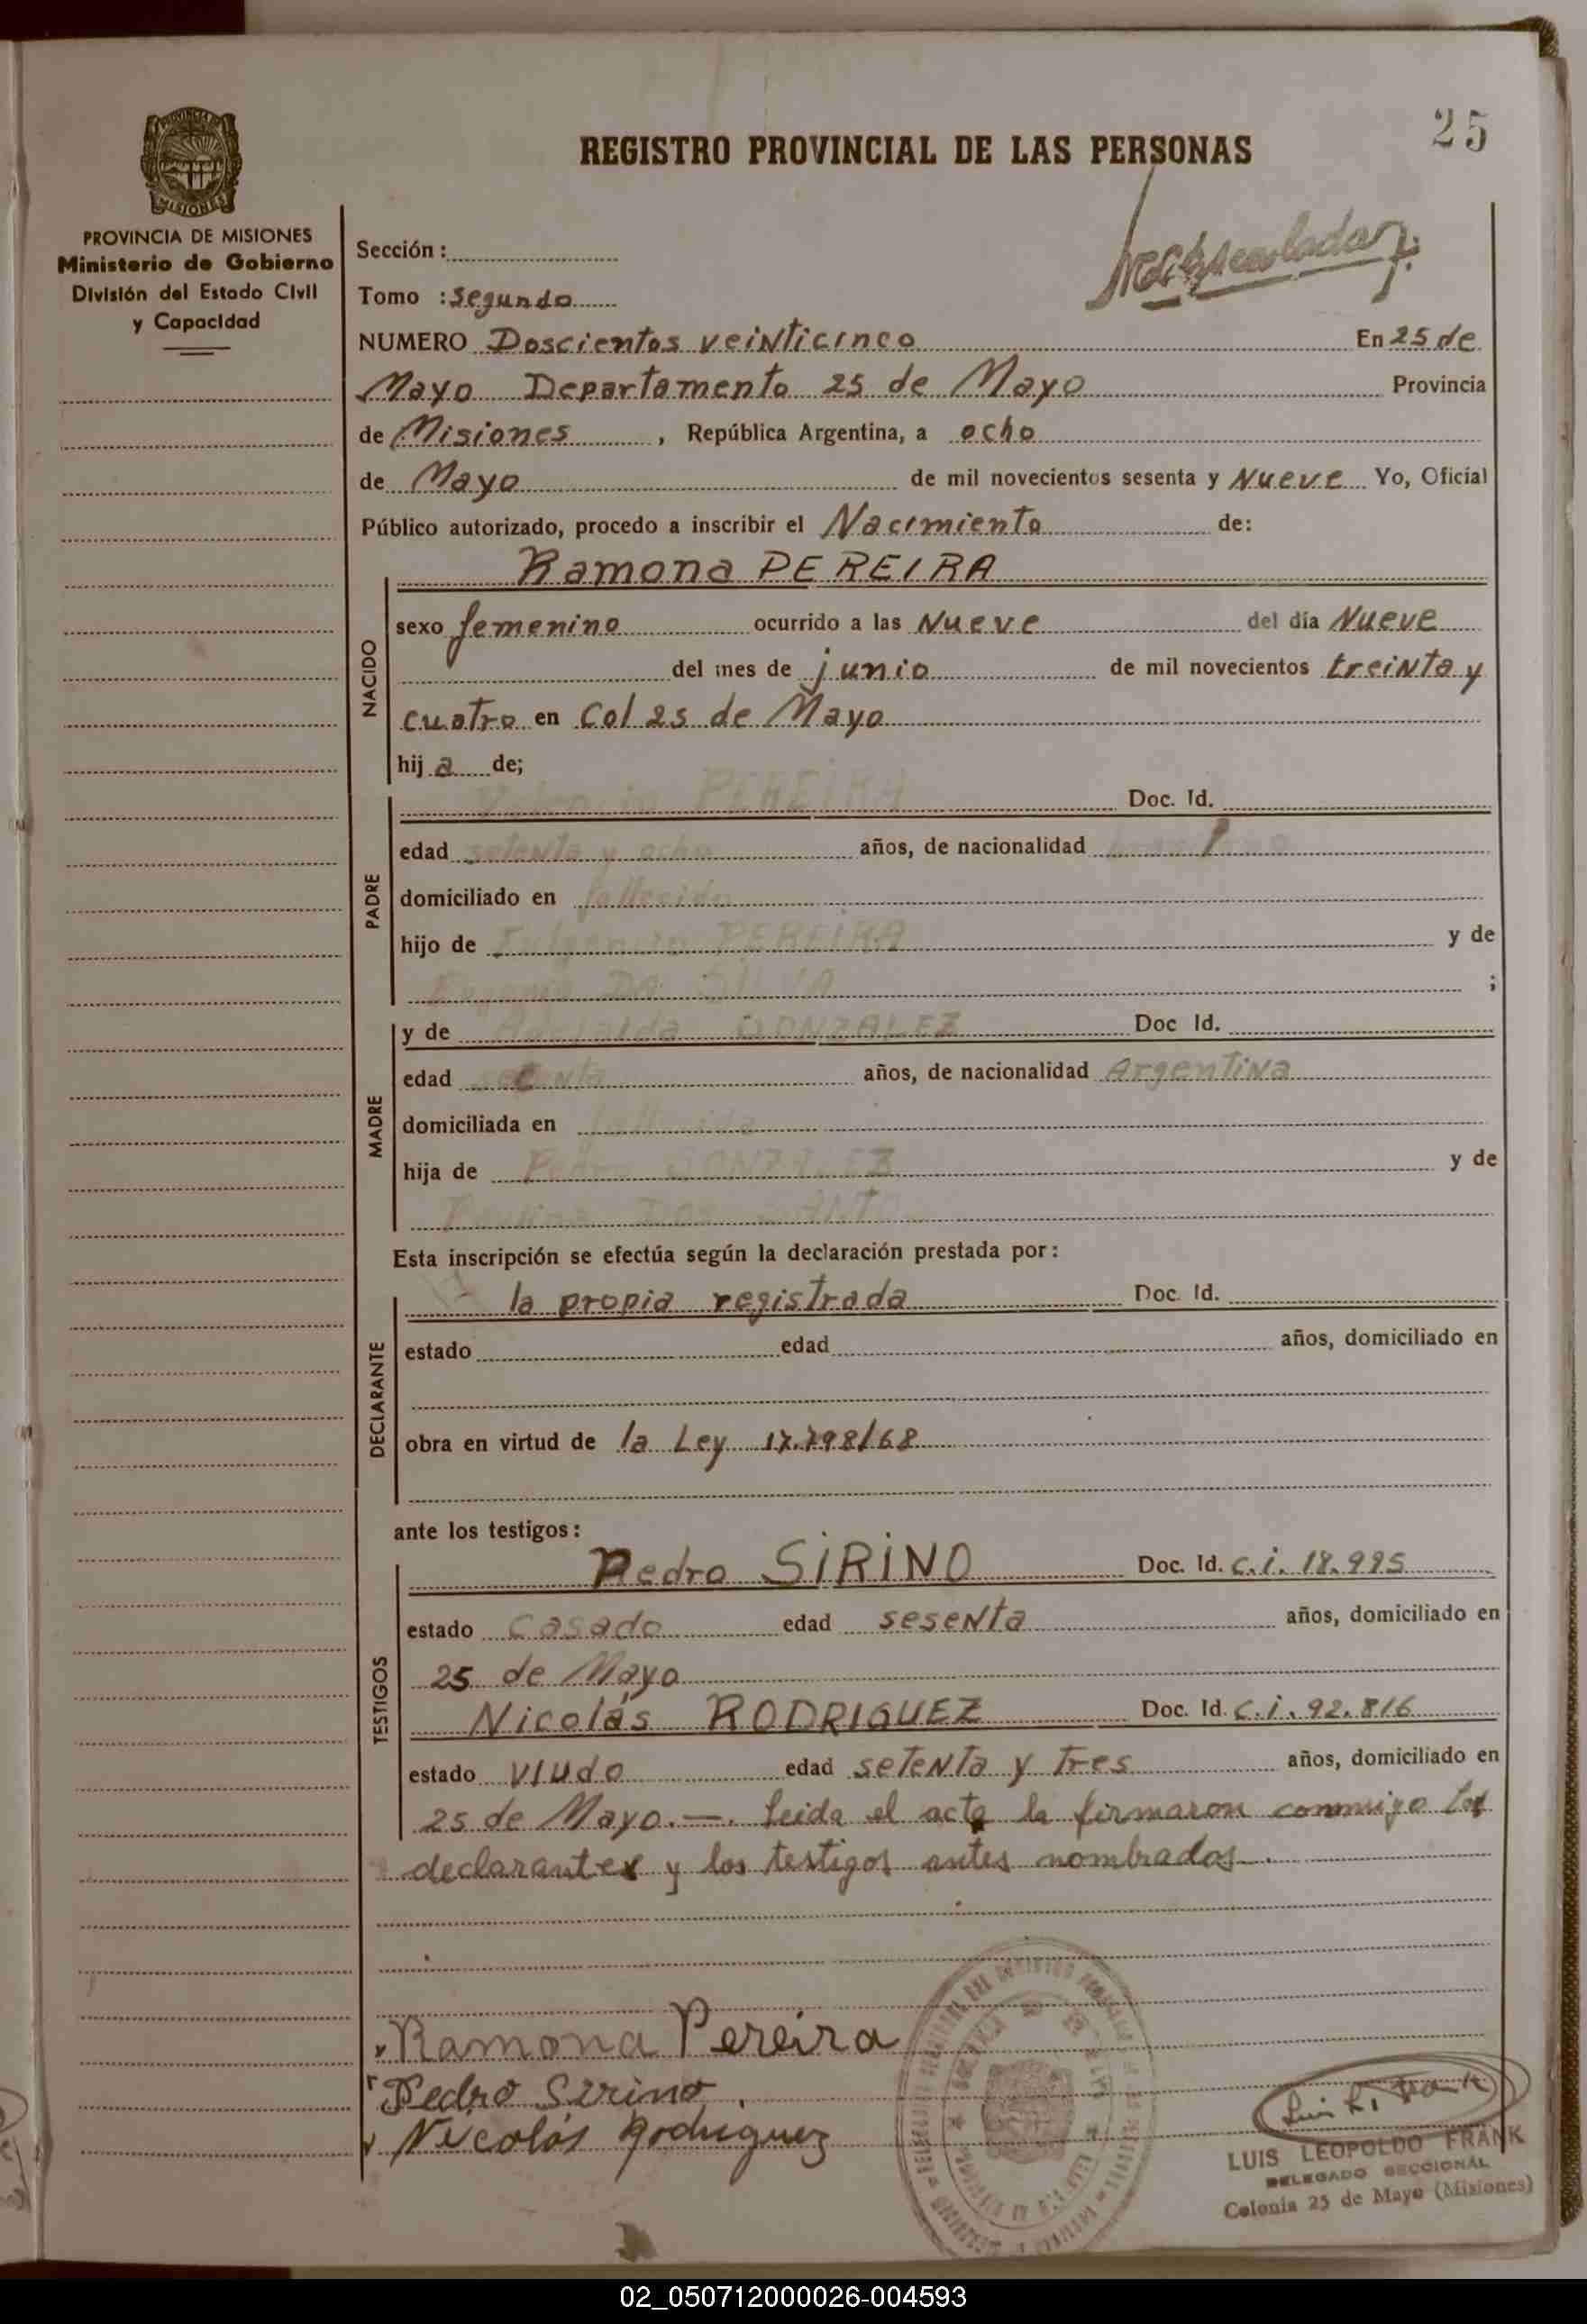 25
REGISTRO PROVINCIAL DE LAS PERSONAS
MISIONES
PROVINCIA DE MISIONES
Ministerio de Gobierno
División del Estado Civil
y Capacidad
Sección :
Tomo : segundo
NUMERO Doscientos veinticinco En 25 de
Mayo Departamento 25 de Mayo Provincia
de Misiones , República Argentina, a ocho
de Mayo de mil novecientos sesenta y Nueve Yo, Oficial
Público autorizado, procedo a inscribir el Nacimiento de:
Ramona PEREIRA
NACIDO
sexo femenino ocurrido a las Nueve del día Nueve
del mes de junio de mil novecientos treinta y
cuatro en Col 25 de Mayo
hij a de;
PADRE
PEREIRA Doc. Id.
edad setenta y ocho años, de nacionalidad
domiciliado en fallecido
hijo de Fulgencio PEREIRA y de
Eugenia DA SILVA ;
MADRE
y de GONZALEZ Doc Id.
edad años, de nacionalidad Argentina
domiciliada en fallecida
hija de Pedro GONZALEZ y de
Paulina DOS SANTOS
Esta inscripción se efectúa según la declaración prestada por:
DECLARANTE
la propia registrada Doc. Id.
estado edad años, domiciliado en
obra en virtud de la Ley 17.798/68
ante los testigos:
TESTIGOS
Pedro SIRINO Doc. Id. c.i. 18.995
estado casado edad sesenta años, domiciliado en
25 de Mayo
Nicolás RODRIGUEZ Doc. Id. c.i. 92.816
estado viudo edad setenta y tres años, domiciliado en
25 de Mayo.—. Leida el acta la firmaron conmigo los
declarantes y los testigos antes nombrados.
Ramona Pereira
Pedro Sirino
Nicolás Rodriguez
Luis L. Frank
LUIS LEOPOLDO FRANK
DELEGADO SECCIONAL
Colonia 25 de Mayo (Misiones)
02_050712000026-004593